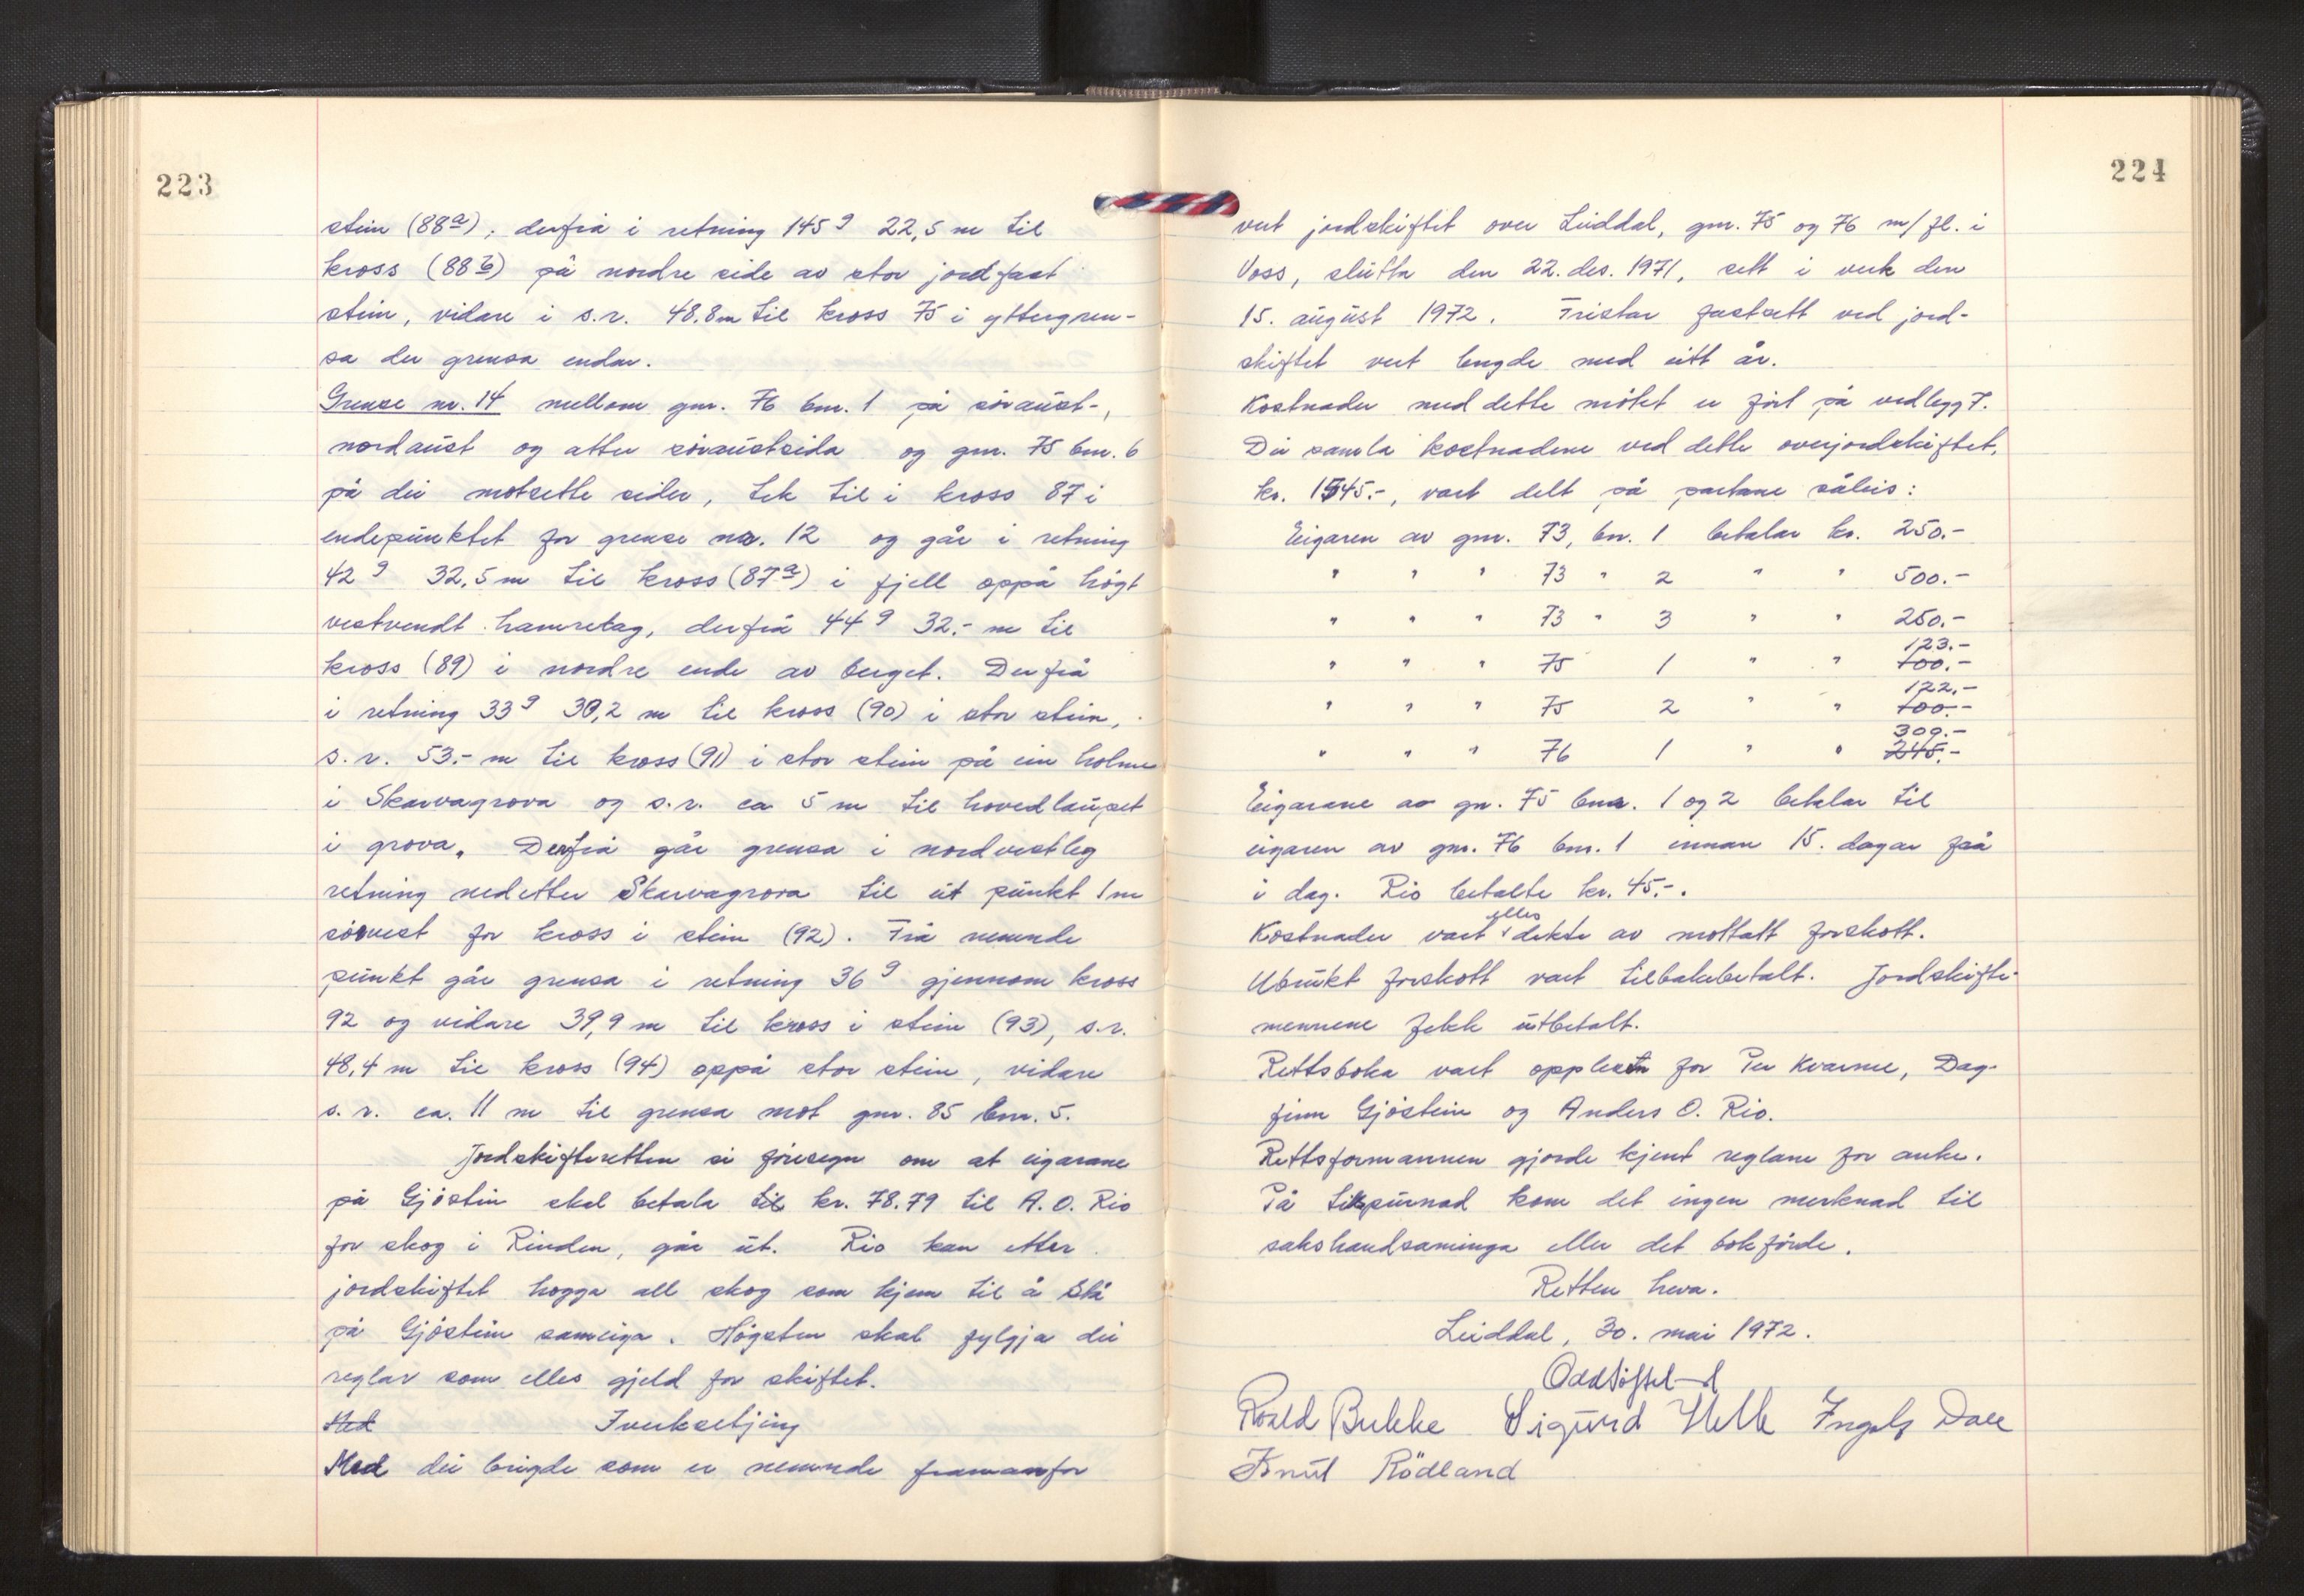 223
stein (88a), derfrå i retning 145g 22,5 m til
kross (88b) på nordre side av stor jordfast
stein, vidare i s.r. 48.8m til kross 75 i yttergren-
sa der grensa endar.
Grense nr. 14 mellom gnr. 76 bnr. 1 på søraust-,
nordaust og atter søraustsida og gnr. 75 bnr. 6
på dei motsette sider, tek til i kross 87 i
endepunktet for grense nr. 12 og går i retning
42g 32,5 m til kross (87a) i fjell oppå høgt
vestvendt hamretag, derfrå 44g 32.- m til
kross (89) i nordre ende av berget. Derfrå
i retning 33g 30,2 m til kross (90) i stor stein,
s.r. 53.- m til kross (91) i stor stein på ein holme
i Skarvagrova og s.r. ca 5 m til hovedlaupet
i grova. Derfrå går grensa i nordvestleg
retning nedetter Skarvagrova til eit punkt 1 m
sørvest for kross i stein (92). Frå nemnde
punkt går grensa i retning 36g gjennom kross
92 og vidare 39,9 m til kross i stein (93), s.r.
48,4 m til kross (94) oppå stor stein, vidare
s.r. ca. 11 m til grensa mot gnr. 85 bnr. 5.
Jordskifteretten si føresegn om at eigarane
på Gjøstein skal betala til kr. 78.79 til A. O. Rio
for skog i Rinden, går ut. Rio kan etter
jordskiftet hogga all skog som kjem til å stå
på Gjøstein sameiga. Høgsten skal fylgja dei
reglar som elles gjeld for skiftet.
Med Iverksetjing
Med dei brigde som er nemnde framanfor
224
vert jordskiftet over Leiddal, gnr. 75 og 76 m/fl. i
Voss, slutta den 22. des. 1971, sett i verk den
15. august 1972. Fristar fastsett ved jord-
skiftet vert lengde med eitt år.
Kostnader med dette møtet er ført på vedlegg 7.
Dei samla kostnadene ved dette overjordskiftet,
kr. 1545.-, vart delt på partane såleis:
Eigaren av gnr. 73, bnr. 1 betalar kr. 250.-
" " " 73 " 2 " " 500.-
" " " 73 " 3 " " 250.-
123.-
" " " 75 1 " " 100.-
122.-
" " " 75 2 " " 100.-
309.-
" " " 76 1 " " 245.-
Eigarane av gnr. 75 bnr. 1 og 2 betalar til
eigaren av gnr. 76 bnr. 1 innan 15. dagar frå
i dag. Rio betalte kr. 45.-.
elles
Kostnader vart dekte av mottatt forskott.
Ubrukt forskott vart tilbakebetalt. Jordskifte-
mennene fekk utbetalt.
Rettsboka vart opplesen for Per Kvarme, Dag-
finn Gjøstein og Anders O. Rio.
Rettsformannen gjorde kjent reglane for anke.
På tilspurnad kom det ingen merknad til
sakshandsaminga eller det bokførde.
Retten heva.
Leiddal, 30. mai 1972.
Roald Bukke Sigurd Helle Ingolf Dale
Knut Rödland